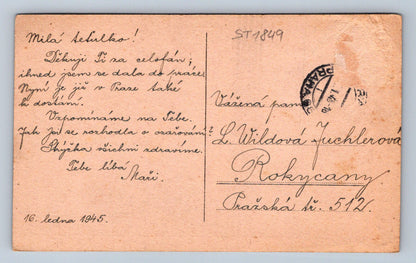 ST1849
Milá tetulko!
Děkuji Ti za celofán;
ihned jsem se dala do práce.
Nyní je již v Praze také
k dostání.
Vzpomínáme na Tebe.
Jak jsi se rozhodla o ozařování?
Strýčka všichni zdravíme.
Tebe líbá
Maři.
16. ledna 1945.
PRAHA
Vážená paní
L. Wildová Juchlerová
Rokycany
Pražská tř. 512.